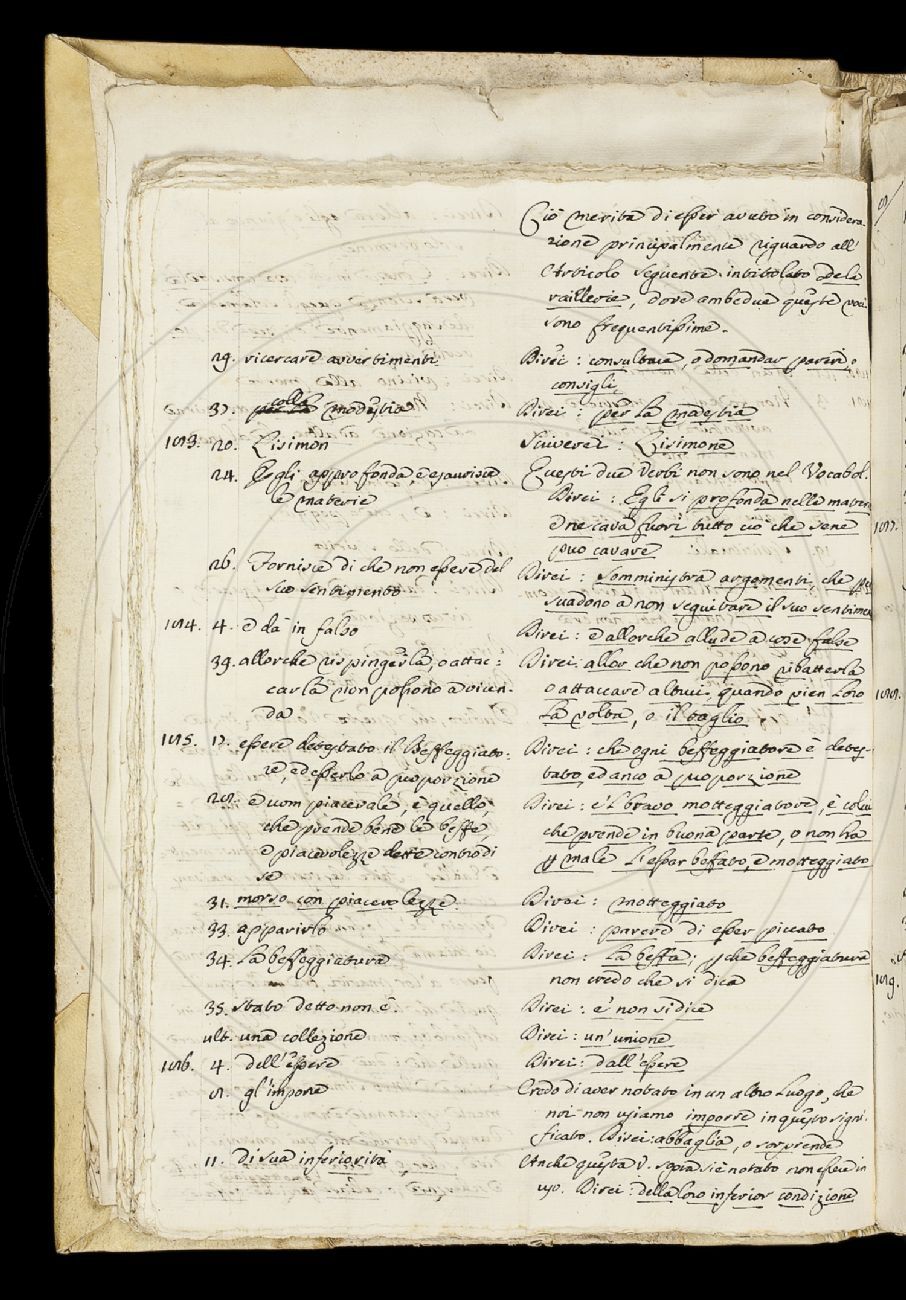 Ciò merita di esser avuto in considera-
zione principalmente riguardo all'
Articolo seguente intittolato De la
raillerie, dove ambedue queste voci
sono frequentissime.
29. ricercare avvertimenti
Direi: consultare, o domandar pareri, o
consigli
37. per la colla modestia
Direi: per la modestia
1013. 20. Lisimon
Scriverei: Lisimone
24. Eegli approfonda, e esaurisce
Questi due Verbi non sono nel Vocabol.
le materie
Direi: Egli si profonda nelle materie
e ne cava fuori tutto ciò che sene
può cavare
26. Fornisce di che non essere del
Direi: somministra argomenti, che per
suo sentimento
suadono a non seguitare il suo sentimen
1014. 4. e dà in falso
Direi: e allorche allude a cose false
39. allorche rispingerla, o attac:
Direi: allor che non possono ribatterla
carla non possono a vicen-
o attaccare altrui, quando vien Loro
da
La volta, o il taglio
1015. 17. essere detestato il Beffeggiato:
Direi: che ogni beffeggiatore è detes-
re, ed esserlo a proporzione
tato, ed anco a proporzione
e uom piacevale, è quello,
Direi: e'l bravo motteggiatore, è colui
che prende bene le beffe
che prende in buona parte, o non ha
e piacevolezze dette contro di
p male L'esser beffato, e motteggiato
se
31. morso con piacevolezze
Direi: motteggiato
33. apparirlo
Direi: parere di esser piccato
34. La beffeggiatura
Direi: La beffa; pche beffeggiatura
non credo che si dica
35. stato detto non è.
Direi: e' non si dice
ult. una collezione
Direi: un'unione
1016. 4. dell'essere
Direi: dall'essere
gl'impone
Credo di aver notato in un altro Luogo, che
noi non usiamo imporre in questo signi-
ficato. Direi: abbaglia, o sorprende
11. di sua inferiorità
Anche questa v. sopra si è notato non essere in
uso. Direi: della loro inferior condizione
1017.
1019.